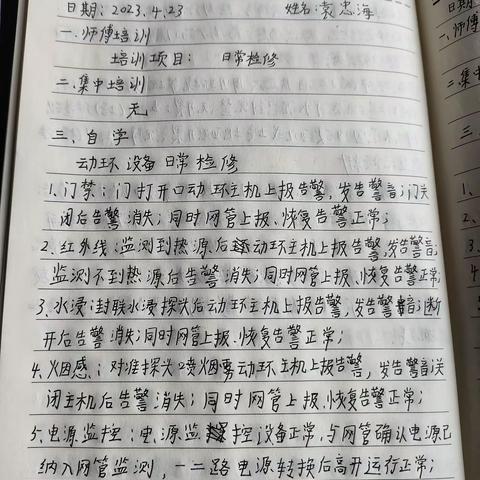 日期：2023.4.23 姓名：袁忠海
一.师傅培训
培训项目： 日常检修
二.集中培训
无
三、自学
动环设备日常检修
1.门禁：门打开口动环主机上报告警，发告警音；门关
闭后告警消失；同时网管上报、恢复告警正常；
2.红外线：监测到热源后动环主机上报告警，发告警音；
监测不到热源后告警消失；同时网管上报、恢复告警正常；
3.水浸：封联水浸探头后动环主机上报告警，发告警音；断
开后告警消失；同时网管上报、恢复告警正常；
4.烟感：对准探头喷烟雾动环主机上报告警，发告警音关
闭主机后告警消失；同时网管上报、恢复告警正常；
5.电源监控：电源监控设备正常，与网管确认电源已
纳入网管监测，一二路电源转换后高开运行正常；